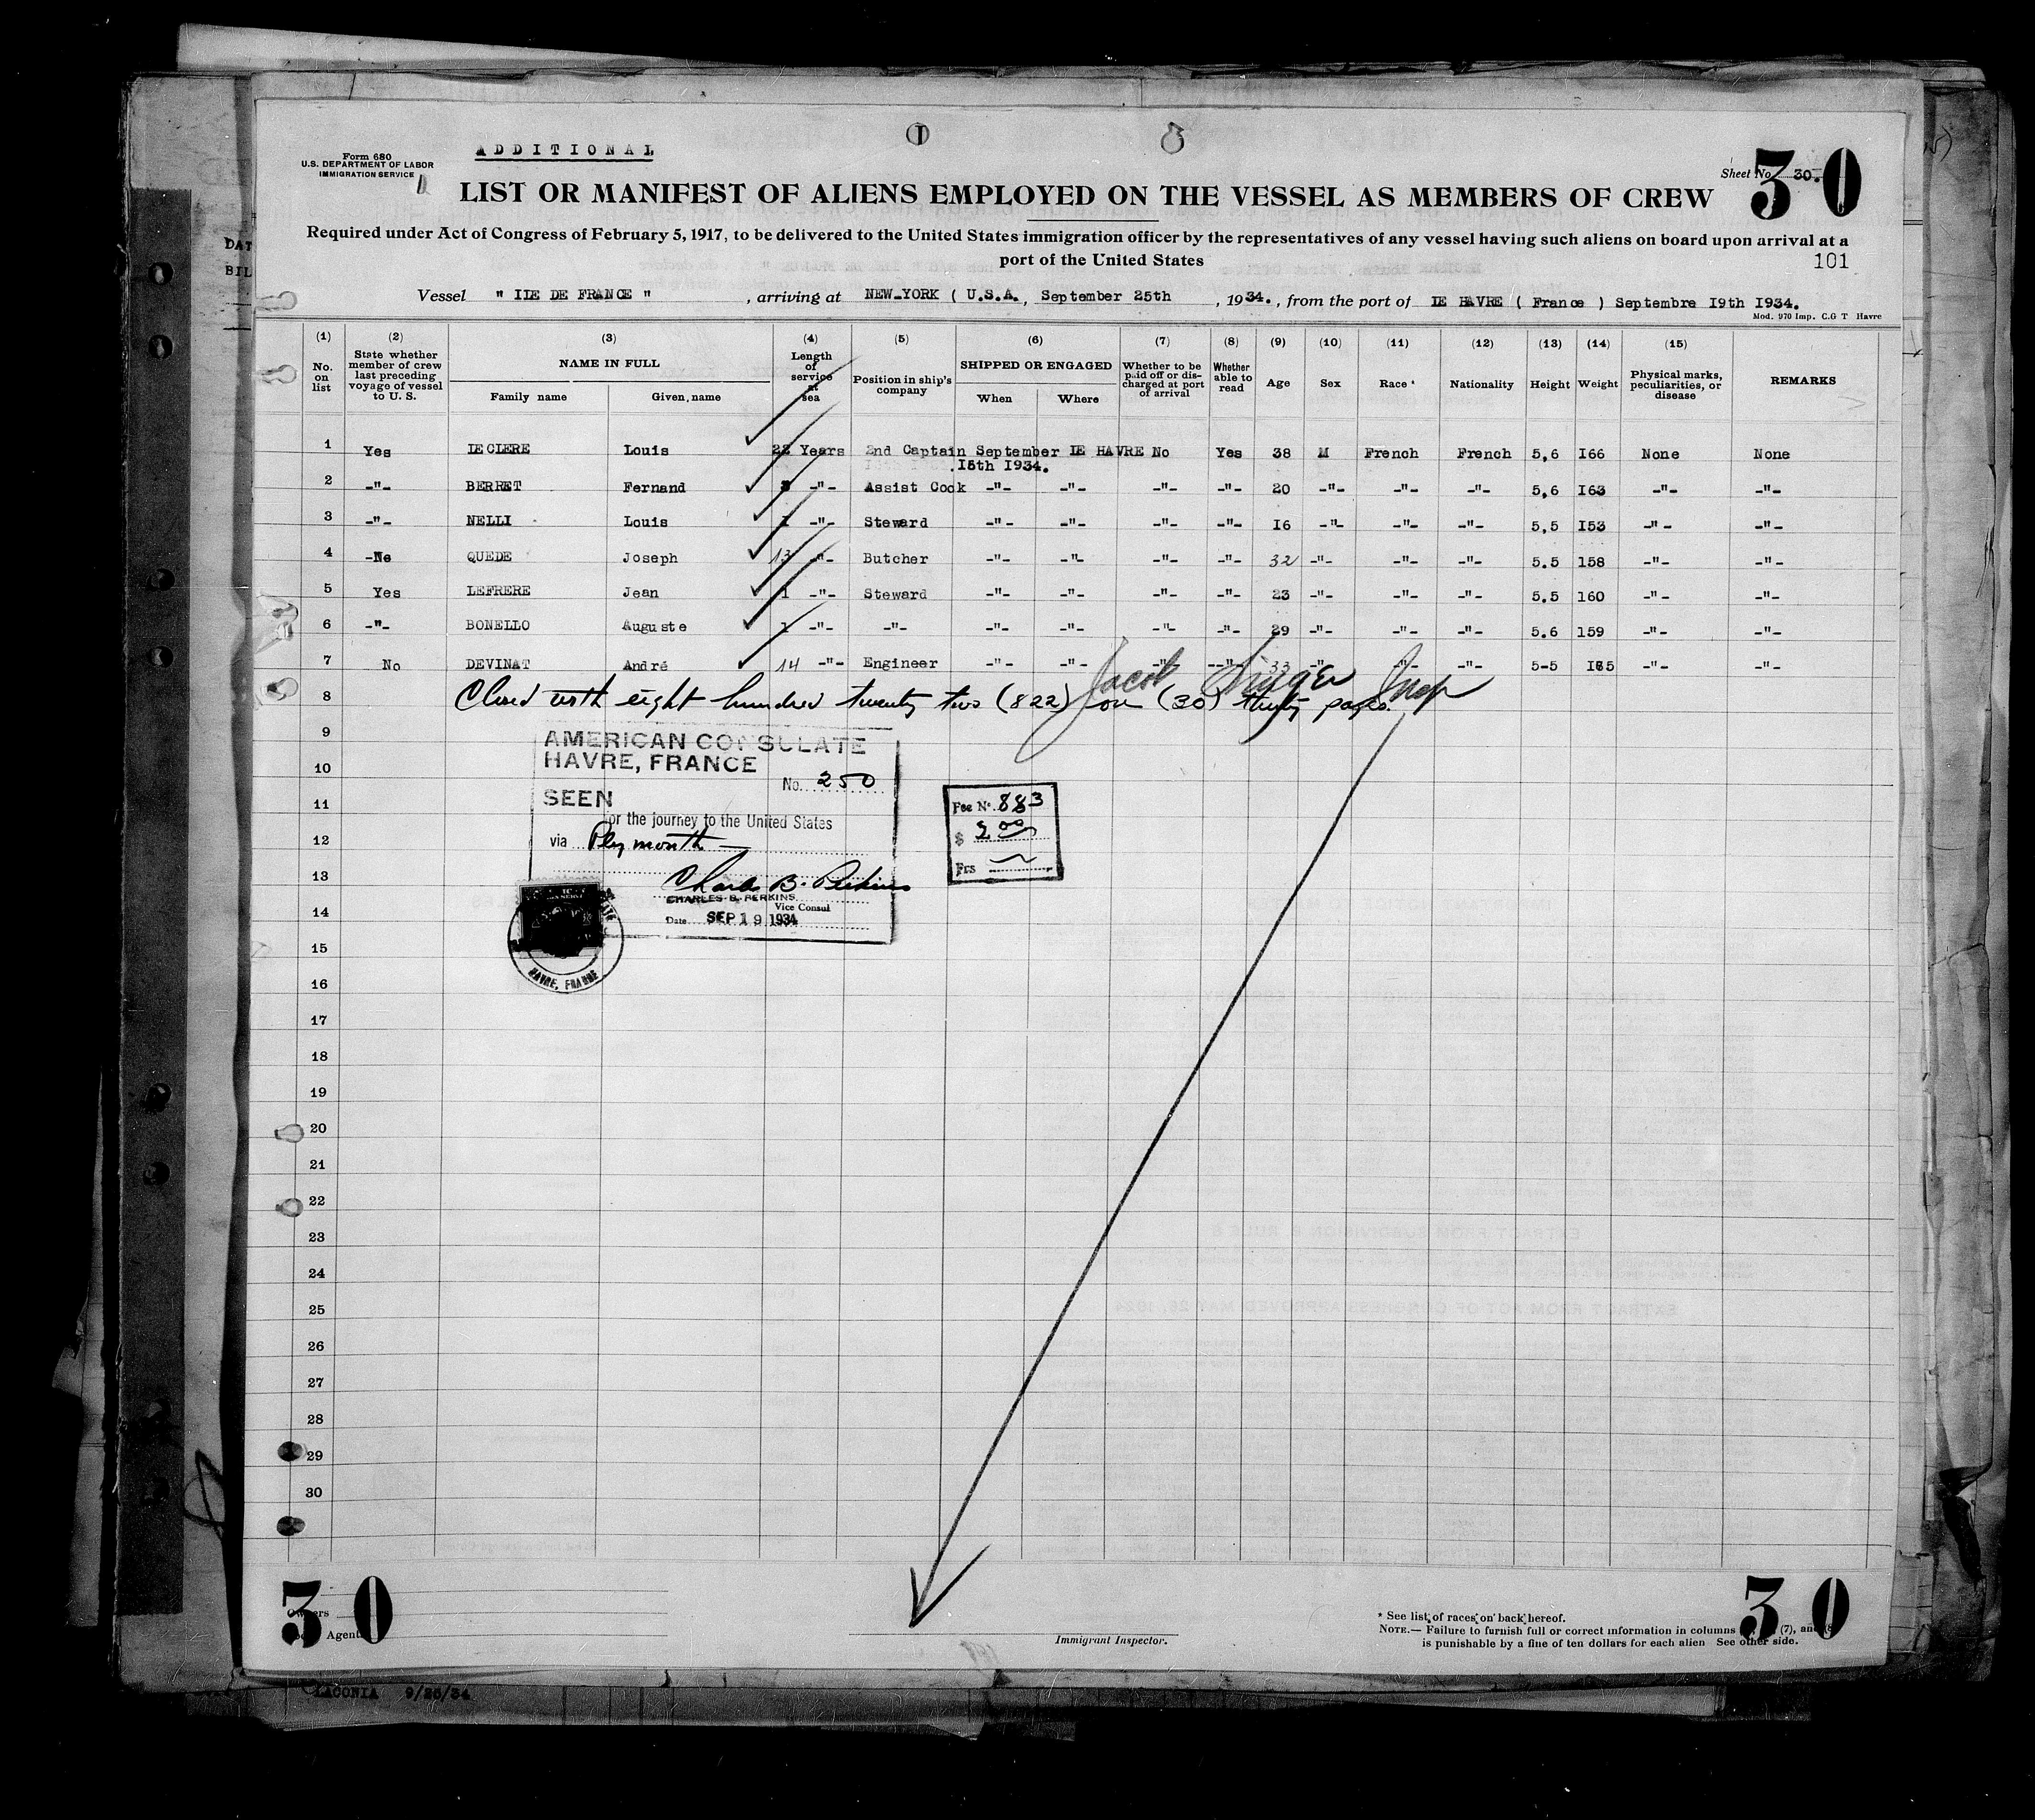 Form 680
U.S. DEPARTMENT OF LABOR
IMMIGRATION SERVICE
ADDITIONAL
Sheet No. 30.
30
LIST OR MANIFEST OF ALIENS EMPLOYED ON THE VESSEL AS MEMBERS OF CREW
Required under Act of Congress of February 5, 1917, to be delivered to the United States immigration officer by the representatives of any vessel having such aliens on board upon arrival at a
port of the United States
101
Vessel " IIE DE FRANCE " , arriving at NEW-YORK ( U.S.A. , September 25th , 1934. , from the port of IE HAVRE ( France ) Septembre I9th I934.
Mod. 970 Imp. C.G T Havre
(1) (2) (3) (4) (5) (6) (7) (8) (9) (10) (11) (12) (13) (14) (15)
No. on list State whether member of crew last preceding voyage of vessel to U. S. NAME IN FULL Family name Given name Length of service at sea Position in ship's company SHIPPED OR ENGAGED When Where Whether to be paid off or discharged at port of arrival Whether able to read Age Sex Race * Nationality Height Weight Physical marks, peculiarities, or disease REMARKS
1 Yes IECIERE Louis 22 Years 2nd Captain September IE HAVRE No Yes 38 M French French 5,6 I66 None None
I5th I934.
2 -"- BERRET Fernand -"- Assist Cook -"- -"- -"- -"- 20 -"- -"- -"- 5,6 I63 -"- -"-
3 -"- NELLI Louis 1 -"- Steward -"- -"- -"- -"- I6 -"- -"- -"- 5,5 I53 -"- -"-
4 -No QUEDE Joseph 13 -"- Butcher -"- -"- -"- -"- 32 -"- -"- -"- 5.5 158 -"- -"-
5 Yes LEFRERE Jean 1 -"- Steward -"- -"- -"- -"- 23 -"- -"- -"- 5.5 160 -"- -"-
6 -"- BONELLO Auguste 1 -"- -"- -"- -"- -"- -"- 29 -"- -"- -"- 5.6 159 -"- -"-
7 No DEVINAT André 14 -"- Engineer -"- -"- -"- -"- 33 -"- -"- -"- 5-5 -"- -"-
Jacob Insp
8 Closed with eight hundred twenty two (822) on (30) thirty pages.
9
10
11
12
13
14
15
16
17
18
19
20
21
22
23
24
25
26
27
28
29
30
AMERICAN CONSULATE
HAVRE, FRANCE
No. 250
SEEN
for the journey to the United States
via Plymouth
Charles B. Perkins
CHARLES B. PERKINS
Vice Consul
Date SEP 19 1934
HAVRE, FRANCE
Fee No. 883
$ 2 00
Frs
30
Owners
Agents
Immigrant Inspector.
* See list of races on back hereof.
NOTE.— Failure to furnish full or correct information in columns (7), and
is punishable by a fine of ten dollars for each alien See other side.
30
LACONIA 9/25/34